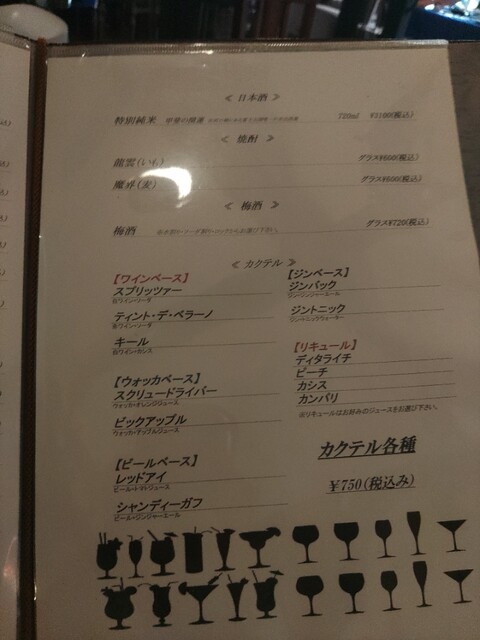 ≪ 日本酒 ≫
特別純米 甲斐の開運 720ml ¥3100(税込)
≪ 焼酎 ≫
龍雲(いも) グラス¥600(税込)
魔界(麦) グラス¥600(税込)
≪ 梅酒 ≫
梅酒 グラス¥720(税込)
≪ カクテル ≫
【ワインベース】
スプリッツァー
白ワイン・ソーダ
ティント・デ・ベラーノ
赤ワイン・ソーダ
キール
白ワイン・カシス
【ウォッカベース】
スクリュードライバー
ウォッカ・オレンジジュース
ビックアップル
ウォッカ・アップルジュース
【ビールベース】
レッドアイ
ビール・トマトジュース
シャンディーガフ
ビール・ジンジャーエール
【ジンベース】
ジンバック
ジン・ジンジャーエール
ジントニック
ジン・トニックウォーター
【リキュール】
ディタライチ
ピーチ
カシス
カンパリ
※リキュールはお好みのジュースをお選び下さい。
カクテル各種
¥750(税込み)